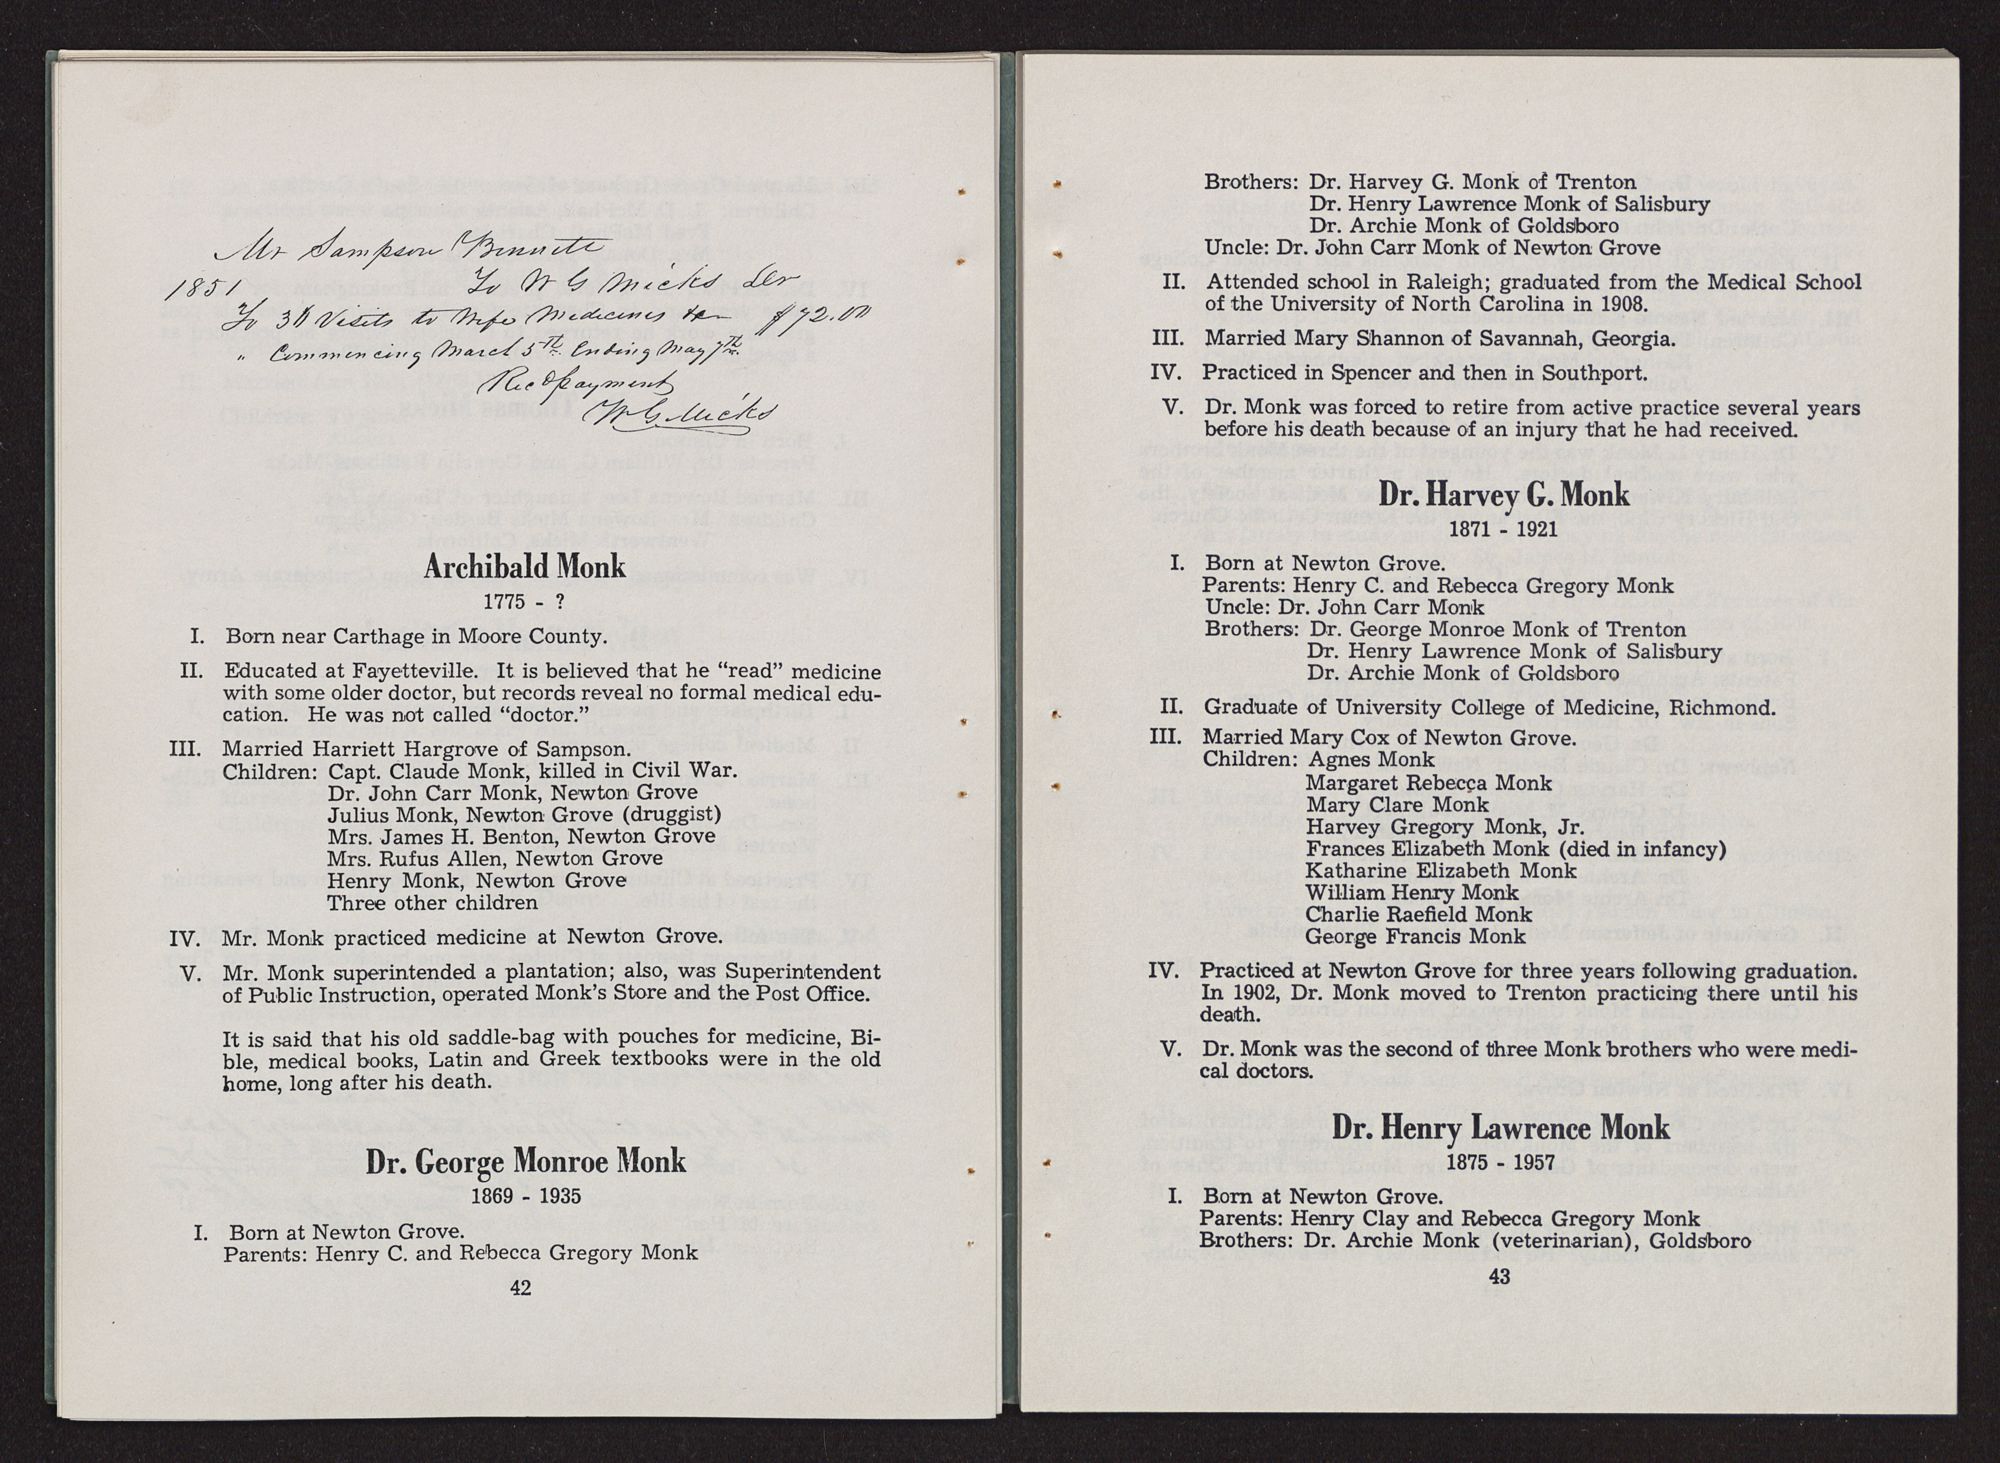 Mr Sampson Bennett
1851 To W G Micks Dr
To 30 Visits to Wife Medicines &c $72.00
" Commencing March 5th Ending May 7th
Recd payment
W G Micks
Archibald Monk
1775 - ?
I. Born near Carthage in Moore County.
II. Educated at Fayetteville. It is believed that he “read” medicine
with some older doctor, but records reveal no formal medical edu-
cation. He was not called “doctor.”
III. Married Harriett Hargrove of Sampson.
Children: Capt. Claude Monk, killed in Civil War.
Dr. John Carr Monk, Newton Grove
Julius Monk, Newton Grove (druggist)
Mrs. James H. Benton, Newton Grove
Mrs. Rufus Allen, Newton Grove
Henry Monk, Newton Grove
Three other children
IV. Mr. Monk practiced medicine at Newton Grove.
V. Mr. Monk superintended a plantation; also, was Superintendent
of Public Instruction, operated Monk’s Store and the Post Office.
It is said that his old saddle-bag with pouches for medicine, Bi-
ble, medical books, Latin and Greek textbooks were in the old
home, long after his death.
Dr. George Monroe Monk
1869 - 1935
I. Born at Newton Grove.
Parents: Henry C. and Rebecca Gregory Monk
42
Brothers: Dr. Harvey G. Monk of Trenton
Dr. Henry Lawrence Monk of Salisbury
Dr. Archie Monk of Goldsboro
Uncle: Dr. John Carr Monk of Newton Grove
II. Attended school in Raleigh; graduated from the Medical School
of the University of North Carolina in 1908.
III. Married Mary Shannon of Savannah, Georgia.
IV. Practiced in Spencer and then in Southport.
V. Dr. Monk was forced to retire from active practice several years
before his death because of an injury that he had received.
Dr. Harvey G. Monk
1871 - 1921
I. Born at Newton Grove.
Parents: Henry C. and Rebecca Gregory Monk
Uncle: Dr. John Carr Monk
Brothers: Dr. George Monroe Monk of Trenton
Dr. Henry Lawrence Monk of Salisbury
Dr. Archie Monk of Goldsboro
II. Graduate of University College of Medicine, Richmond.
III. Married Mary Cox of Newton Grove.
Children: Agnes Monk
Margaret Rebecca Monk
Mary Clare Monk
Harvey Gregory Monk, Jr.
Frances Elizabeth Monk (died in infancy)
Katharine Elizabeth Monk
William Henry Monk
Charlie Raefield Monk
George Francis Monk
IV. Practiced at Newton Grove for three years following graduation.
In 1902, Dr. Monk moved to Trenton practicing there until his
death.
V. Dr. Monk was the second of three Monk brothers who were medi-
cal doctors.
Dr. Henry Lawrence Monk
1875 - 1957
I. Born at Newton Grove.
Parents: Henry Clay and Rebecca Gregory Monk
Brothers: Dr. Archie Monk (veterinarian), Goldsboro
43